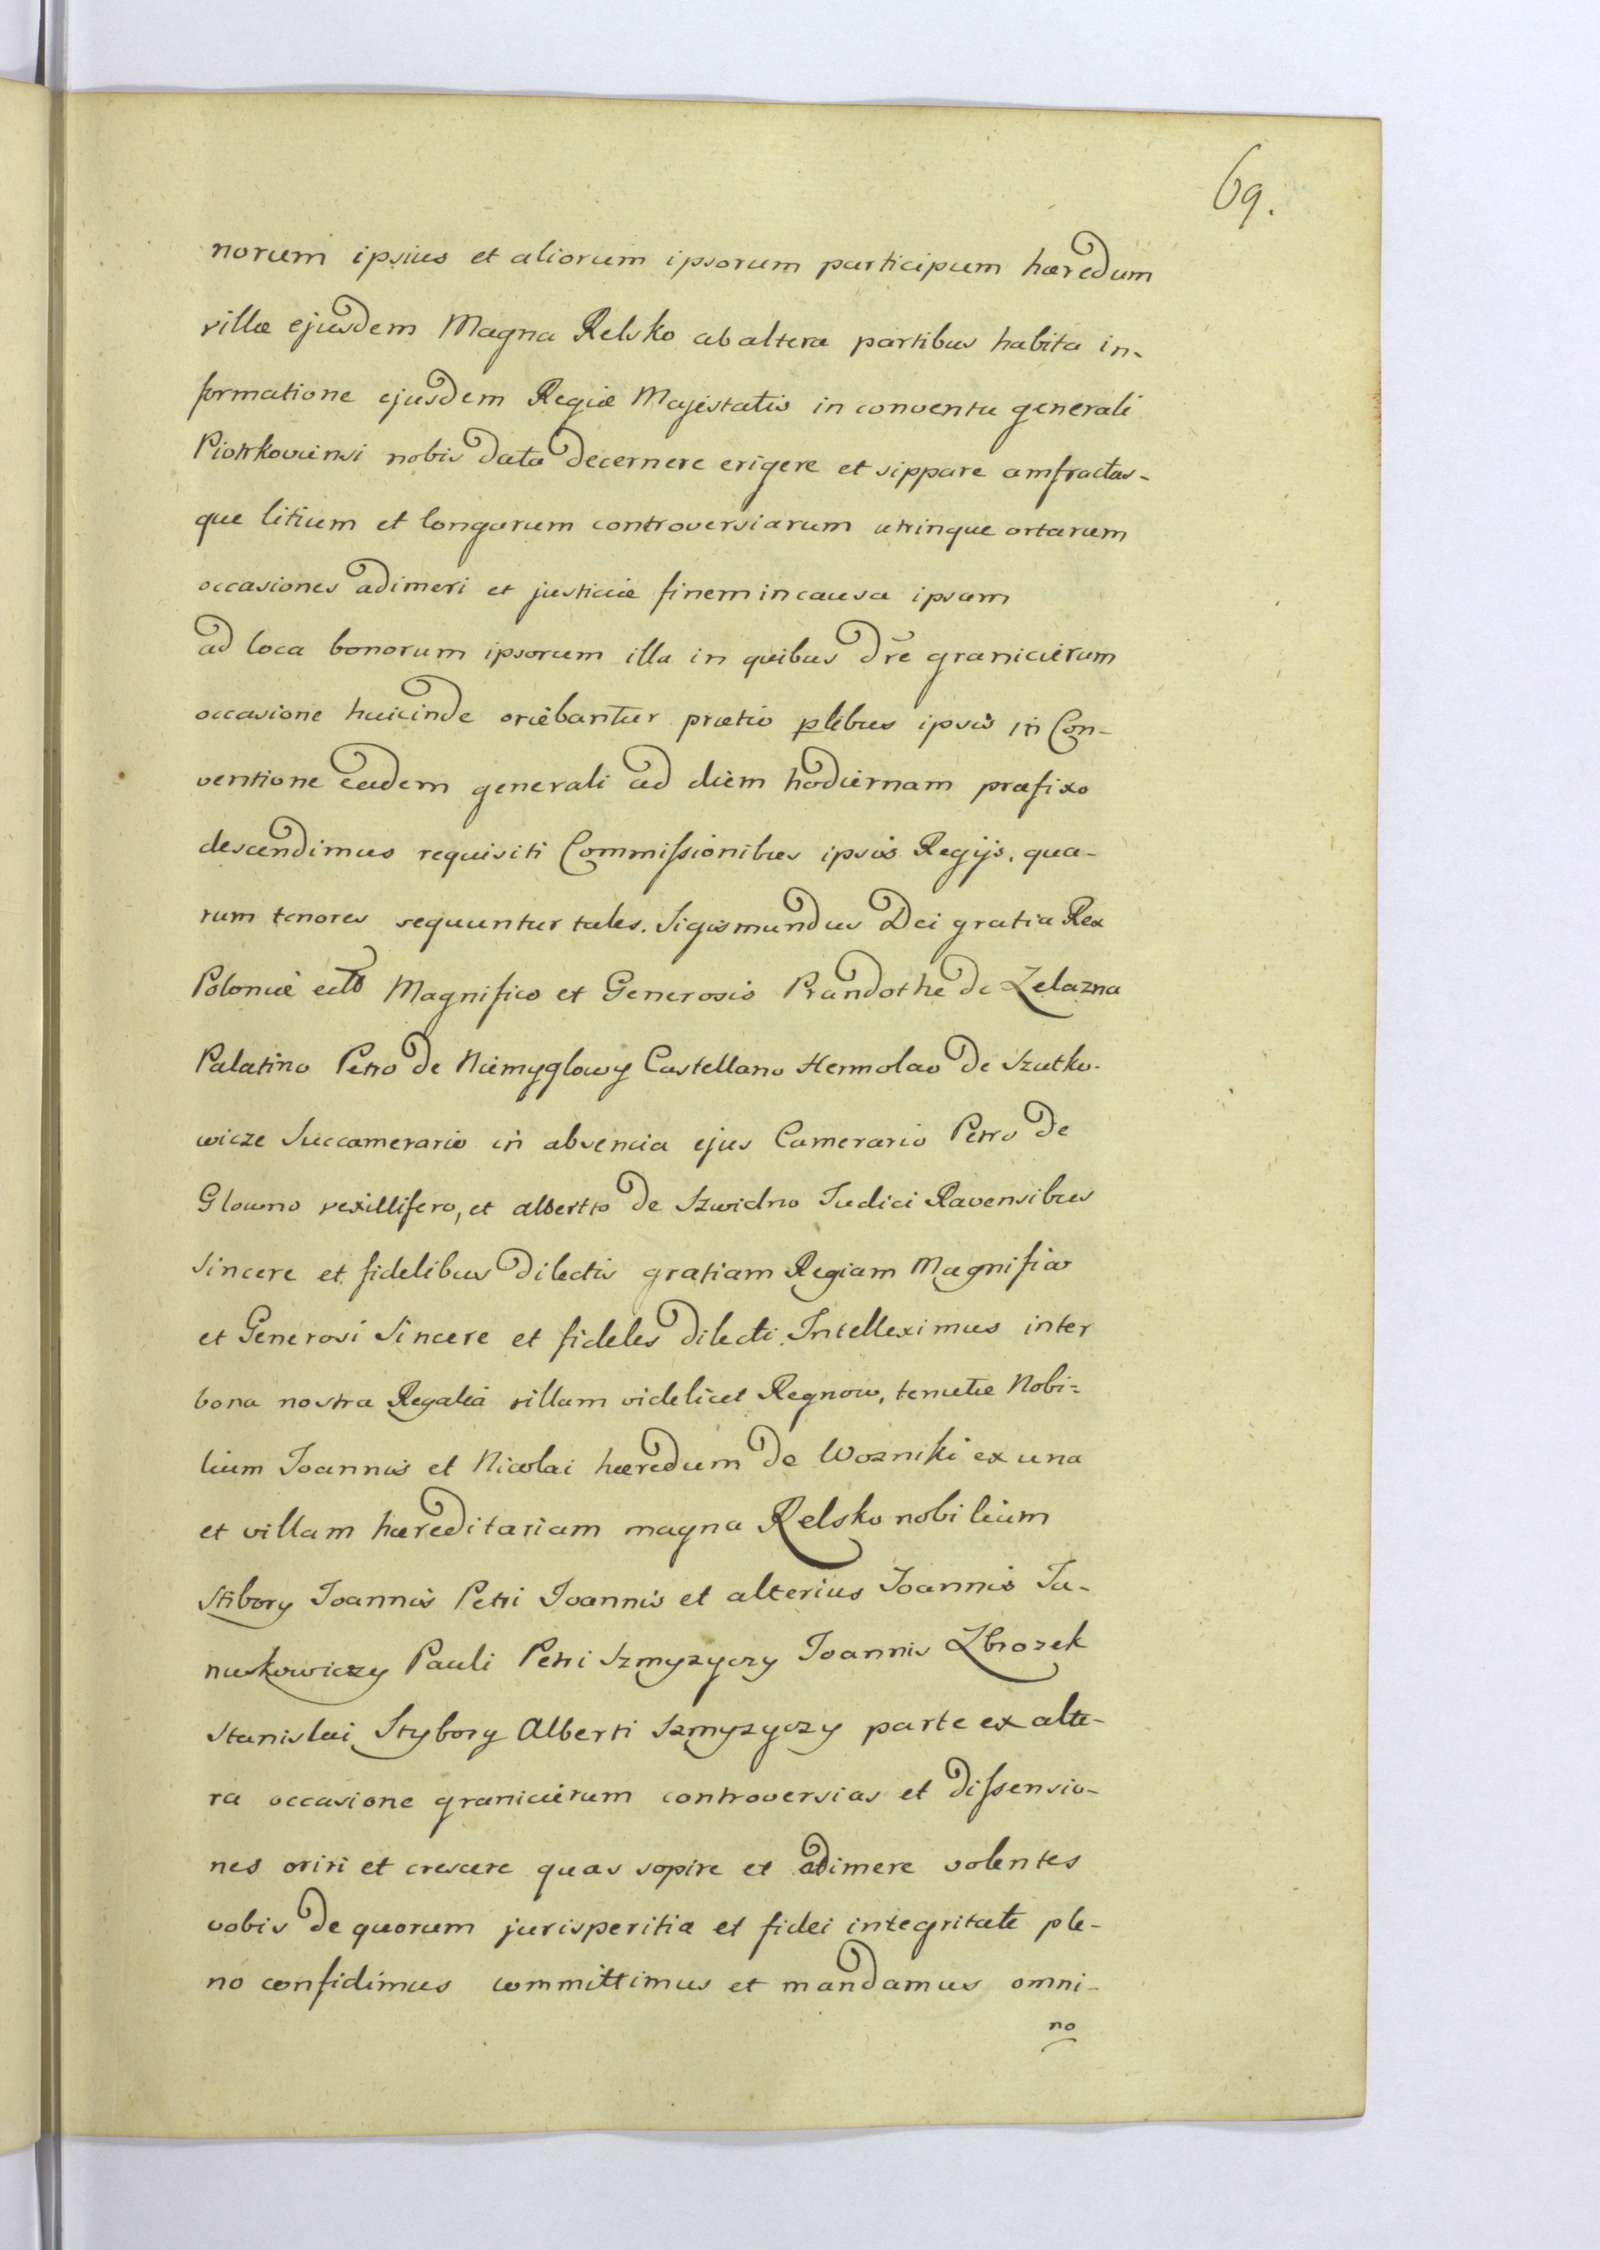 69.
norum ipsius et aliorum ipsorum participum hæredum
villæ ejusdem Magna Relsko ab altera partibus habita in-
formatione ejusdem Regiæ Majestatis in conventu generali
Piotrkoviensi nobis data decernere erigere et sippare amfractus-
que litium et longarum controversiarum utrinque ortarum
occasiones adimeri et justiciæ finem in causa ipsam
ad loca bonorum ipsorum illa in quibus dr̄e granicierum
occasione huicinde oriebantur prætio plebus ipsis in Con-
ventione eadem generali ad diem hodiernam præfixo
descendimus requisiti Commissionibus ipsis Regijs, qua-
rum tenores sequuntur tales. Sigismundus Dei gratia Rex
Poloniæ Magnifico et Generosis Prandothe de Zelazna
Palatino Petro de Niemyglowy Castellano Hermolao de Szutko-
wicze Succamerario in absencia ejus Camerario Petro de
Glowno vexillifero, et alberto de Szwidno Judici Ravensibus
Sincere et fidelibus dilectis gratiam Regiam Magnifico
et Generosi Sincere et fideles dilecti. Intelleximus inter
bona nostra Regalia villam videlicet Regnow, temutæ Nobi=
lium Joannis et Nicolai hæredum de Wozniki ex una
et villam hæreditariam magna Relsko nobilium
Stibory Joannis Petri Joannis et alterius Joannis Ja-
nuskowiczy Pauli Petri Szmyzyczy Joannis Zbrozek
Stanislai Stybory Alberti Szmyzyczy parte ex alte-
ra occasione granicierum controversias et dissensio-
nes oriri et crescere quas sopire et adimere volentes
vobis de quorum jurisperitia et fidei integritate ple-
no confidimus committimus et mandamus omni-
no